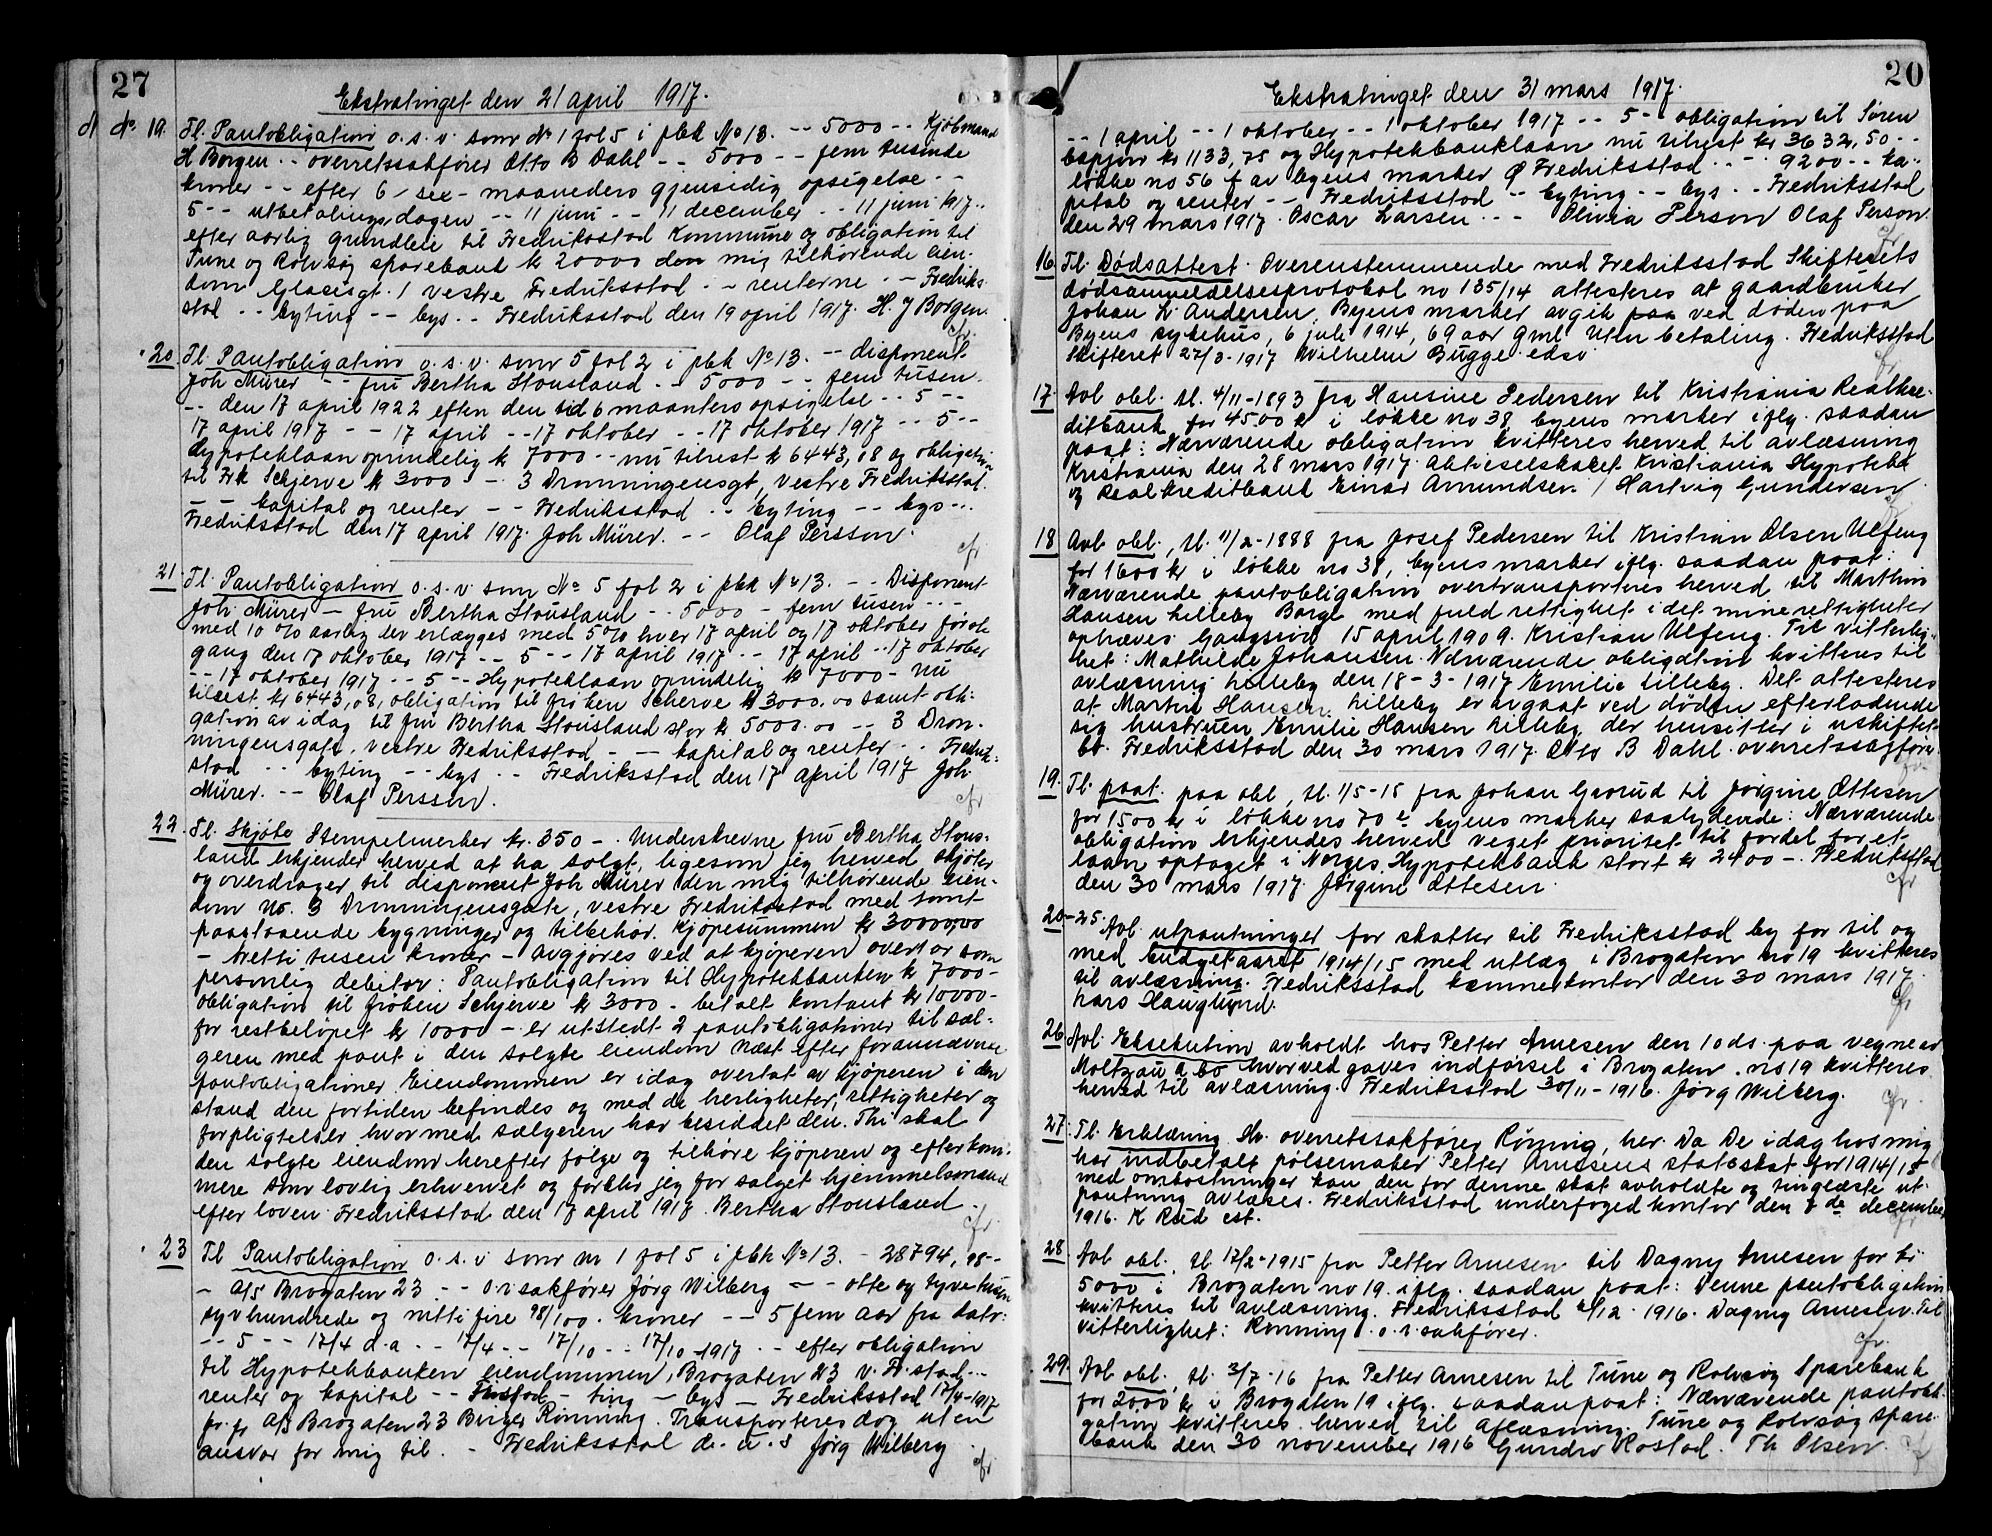 27
Ekstratinget den 21 april 1917.
No. 19. Tl. Pantobligation o. s. v. som No 1 fol 5 i pbk No 13. -- 5000 -- Kjøbmand
H Borgen -- overretssakfører Otto B Dahl -- 5000 -- fem tusinde
kroner -- efter 6 - sex - maaneders gjensidig opsigelse --
5 -- utbetalingsdagen -- 11 juni -- 11 december -- 11 juni 1917 --
efter aarlig grundleie til Fredriksstad Kommune og obligation til
Tune og Rolvsøy sparebank kr 20000 den mig tilhørende eien-
dom Glacisgt. 1 vestre Fredriksstad -- renterne -- Fredriks-
stad -- byting -- bys -- Fredriksstad den 19 april 1917. H. J Borgen.
cfr
20. Tl. Pantobligation o. s. v. som 5 fol 2 i pbk No 13. -- disponent
Joh Mürer -- fru Bertha Stousland -- 5000 -- fem tusen -
-- den 17 april 1922 efter den tid 6 maaneders opsigelse -- 5 --
17 april 1917 -- 17 april -- 17 oktober -- 17 oktober 1917 -- 5 --
Hypoteklaan oprindelig kr 7000 -- nu tilrest kr 6443,08 og obligation
til Frk Schjerve kr 3000 -- 3 Dronningensgt, vestre Fredriksstad.
-- kapital og renter -- Fredriksstad -- byting -- bys --
Fredriksstad den 17 april 1917. Joh Mürer. -- Olaf Persson.
cfr
21. Tl. Pantobligation o. s. v. som No 5 fol 2 i pbk No 13. -- Disponent
Joh. Mürer - fru Bertha Stousland -- 5000 - fem tusen --
med 10 % aarlig der erlægges med 5% hver 17 april og 17 oktober første
gang den 17 oktober 1917 -- 5 -- 17 april 1917 -- 17 april -- 17 oktober
-- 17 oktober 1917 -- 5 -- Hypoteklaan oprindelig kr 7000 - nu
tilrest kr 6443,08, obligation til frøken Scherve kr 3000.00 samt obli-
gation av idag til fru Bertha Stousland stor kr 5000.00 -- 3 Dron-
ningensgate, vestre Fredriksstad -- kapital og renter -- Fredriks-
stad -- byting -- bys -- Fredriksstad den 17 april 1917 Joh
Mürer. -- Olaf Persson.
cfr
22. Tl. Skjøte Stempelmerker kr. 350 -. Underskrevne fru Bertha Stous-
land erkjender herved at ha solgt, ligesom jeg herved skjøter
og overdrager til disponent Joh Mürer den mig tilhørende eien-
dom No. 3 Dronningensgate, vestre Fredriksstad med tomt
paastaaende bygninger og tilbehør. Kjøpesummen kr 30000,00
- tretti tusen kroner - avgjøres ved at kjøperen overtar som
personlig debitor: Pantobligation til Hypotekbanken kr 7000 -
obligation til frøken Schjerve kr 3000 - betalt kontant kr 10000 -
for restbeløpet kr 10000 - er utstedt 2 pantobligationer til sæl-
geren med pant i den solgte eiendom næst efter forannævnte
pantobligationer Eiendommen er idag overtat av kjøperen i den
stand den fortiden befindes og med de herligheter, rettigheter og
forpligtelser hvormed sælgeren har besiddet den. Thi skal
den solgte eiendom herefter følge og tilhøre kjøperen og efterkom-
mere som lovlig erhvervet og forblir jeg for salget hjemmelsmand
efter loven Fredriksstad den 17 april 1917. Bertha Stousland.
cfr.
23 Tl Pantobligation o. s. v som nr 1 fol 5 i pbk No 13. - 28794,98 -
- A/S Brogaten 23 -- o.r.sakfører Jørg Wilberg -- otte og tyve tusen
syvhundrede og nitti fire 98/100 kroner -- 5 fem aar fra dato:
-- 5 -- 17/4 d.a -- 17/4 -- 17/10 -- 17/10 1917 -- efter obligation
til Hypotekbanken eiendommen, Brogaten 23 v. Fr.stad --
renter og kapital -- Fr.stad - ting - bys - Fredriksstad 17/4-1917
for A/S Brogaten 23 Birger Rönning. Transporteres dog uten
ansvar for mig til. - Fredriksstad d. u. s Jørg Wilberg
cfr.
20
Ekstratinget den 31 mars 1917.
-- 1 april -- 1 oktober -- 1 oktober 1917 -- 5 - obligation til Søren
kr 1133,75 og Hypotekbanklaan nu tilrest kr 3632,50 --
løkke no 56 f av byens marker Ø Fredriksstad -- 9200 -- ka-
pital og renter -- Fredriksstad -- byting -- bys -- Fredriksstad
den 29 mars 1917. Oscar Larsen -- Olivia Person Olaf Person.
cfr
16. Tl. Dødsattest. Overenstemmende med Fredriksstad Skifterets
dødsanmeldelsesprotokol no 135/14 attesteres at gaardbruker
Johan L. Andersen, Byens marker avgik paa ved døden paa
Byens sykehus, 6 juli 1914, 69 aar gml Uten betaling. Fredriksstad
Skifteret 27/3-1917 Wilhelm Bugge edsv.
cfr
17. Avl obl. tl. 4/11-1893 fra Hansine Pedersen til Kristiania Realkre-
ditbank for 4500 kr i løkke no 38 byens marker iflg. saadan
paat: Nærværende obligation kvitteres herved til avlæsning
Kristiania den 28 mars 1917. Aktieselskabet Kristiania Hypotek
og Realkreditbank Einar Amundsen / Hartvig Gundersen
18. Avl obl., tl. 11/2-1888 fra Josef Pedersen til Kristian Olsen Ulfeng
for 1600 kr i løkke no 38, byens marker iflg. saadan paat:
Nærværende pantobligation overtransporteres herved, til Marthin
Hansen Lilleby Borge med fuld rettighet i det mine rettigheter
ophæves Gangsrød 15 april 1909. Kristian Ulfeng. Til vitterlig-
het: Mathilde Johansen. Nærværende obligation kvitteres til
avlæsning Lilleby den 18-3-1917 Emilie Lilleby. Det attesteres
at Martin Hansen Lilleby er avgaat ved døden efterladende
sig hustruen Emilie Hansen Lilleby, der hensitter i uskiftet
bo. Fredriksstad den 30 mars 1917. Otto B Dahl overretssagfører.
19. Tl. paat. paa obl, tl. 1/5-15 fra Johan Gaarud til Jørgine Ottesen
for 1500 kr i løkke no 70 e byens marker saalydende: Nærværende
obligation erkjendes herved veget prioritet til fordel for et
laan optaget i Norges Hypotekbank stort kr 2400 -. Fredriksstad
den 30 mars 1917. Jørgine Ottesen.
cfr
20-25. Avl. utpantninger for skatter til Fredriksstad by for til og
med budgetaaret 1914/15 med utlæg i Brogaten no 19 kvitteres
til avlæsning. Fredriksstad kæmnerkontor den 30 mars 1917.
Lars Hauglund.
cfr
26. Avl. Eksekution avholdt hos Petter Arnesen den 10 ds. paa vegne av
Moltzau & Co hvorved gaves indførsel i Brogaten no 19 kvitteres
herved til avlæsning. Fredriksstad 30/11-1916. Jørg Wilberg.
cfr.
27. Tl. Erklæring Hr. overretssakfører Rönnig, her. Da De idag hos mig
har indbetalt pølsemaker Petter Arnesens statsskat for 1914/15
med omkostninger kan den for denne skat avholdte og tinglæste ut-
pantning avlæses. Fredriksstad underfogedkontor den 7de december
1916. K Rud est.
28. Avl obl. tl. 17/2-1915 fra Petter Arnesen til Dagny Arnesen for kr
5000 i Brogaten no 19. iflg. saadan paat: Denne pantobligation
kvitteres til avlæsning. Fredriksstad /12 1916. Dagny Arnesen. Til
vitterlighet: Rönning o. r. sakfører.
cfr.
29. Avl obl., tl. 3/7-16 fra Petter Arnesen til Tune og Rolvsøy Sparebank
for 2000 kr i Brogaten 19 iflg. saadan paat: Nærværende pantobli-
gation kvitteres herved til aflæsning. Tune og Rolvsøy spare-
bank den 30 november 1916 Gunder Rostad. Th Olsen